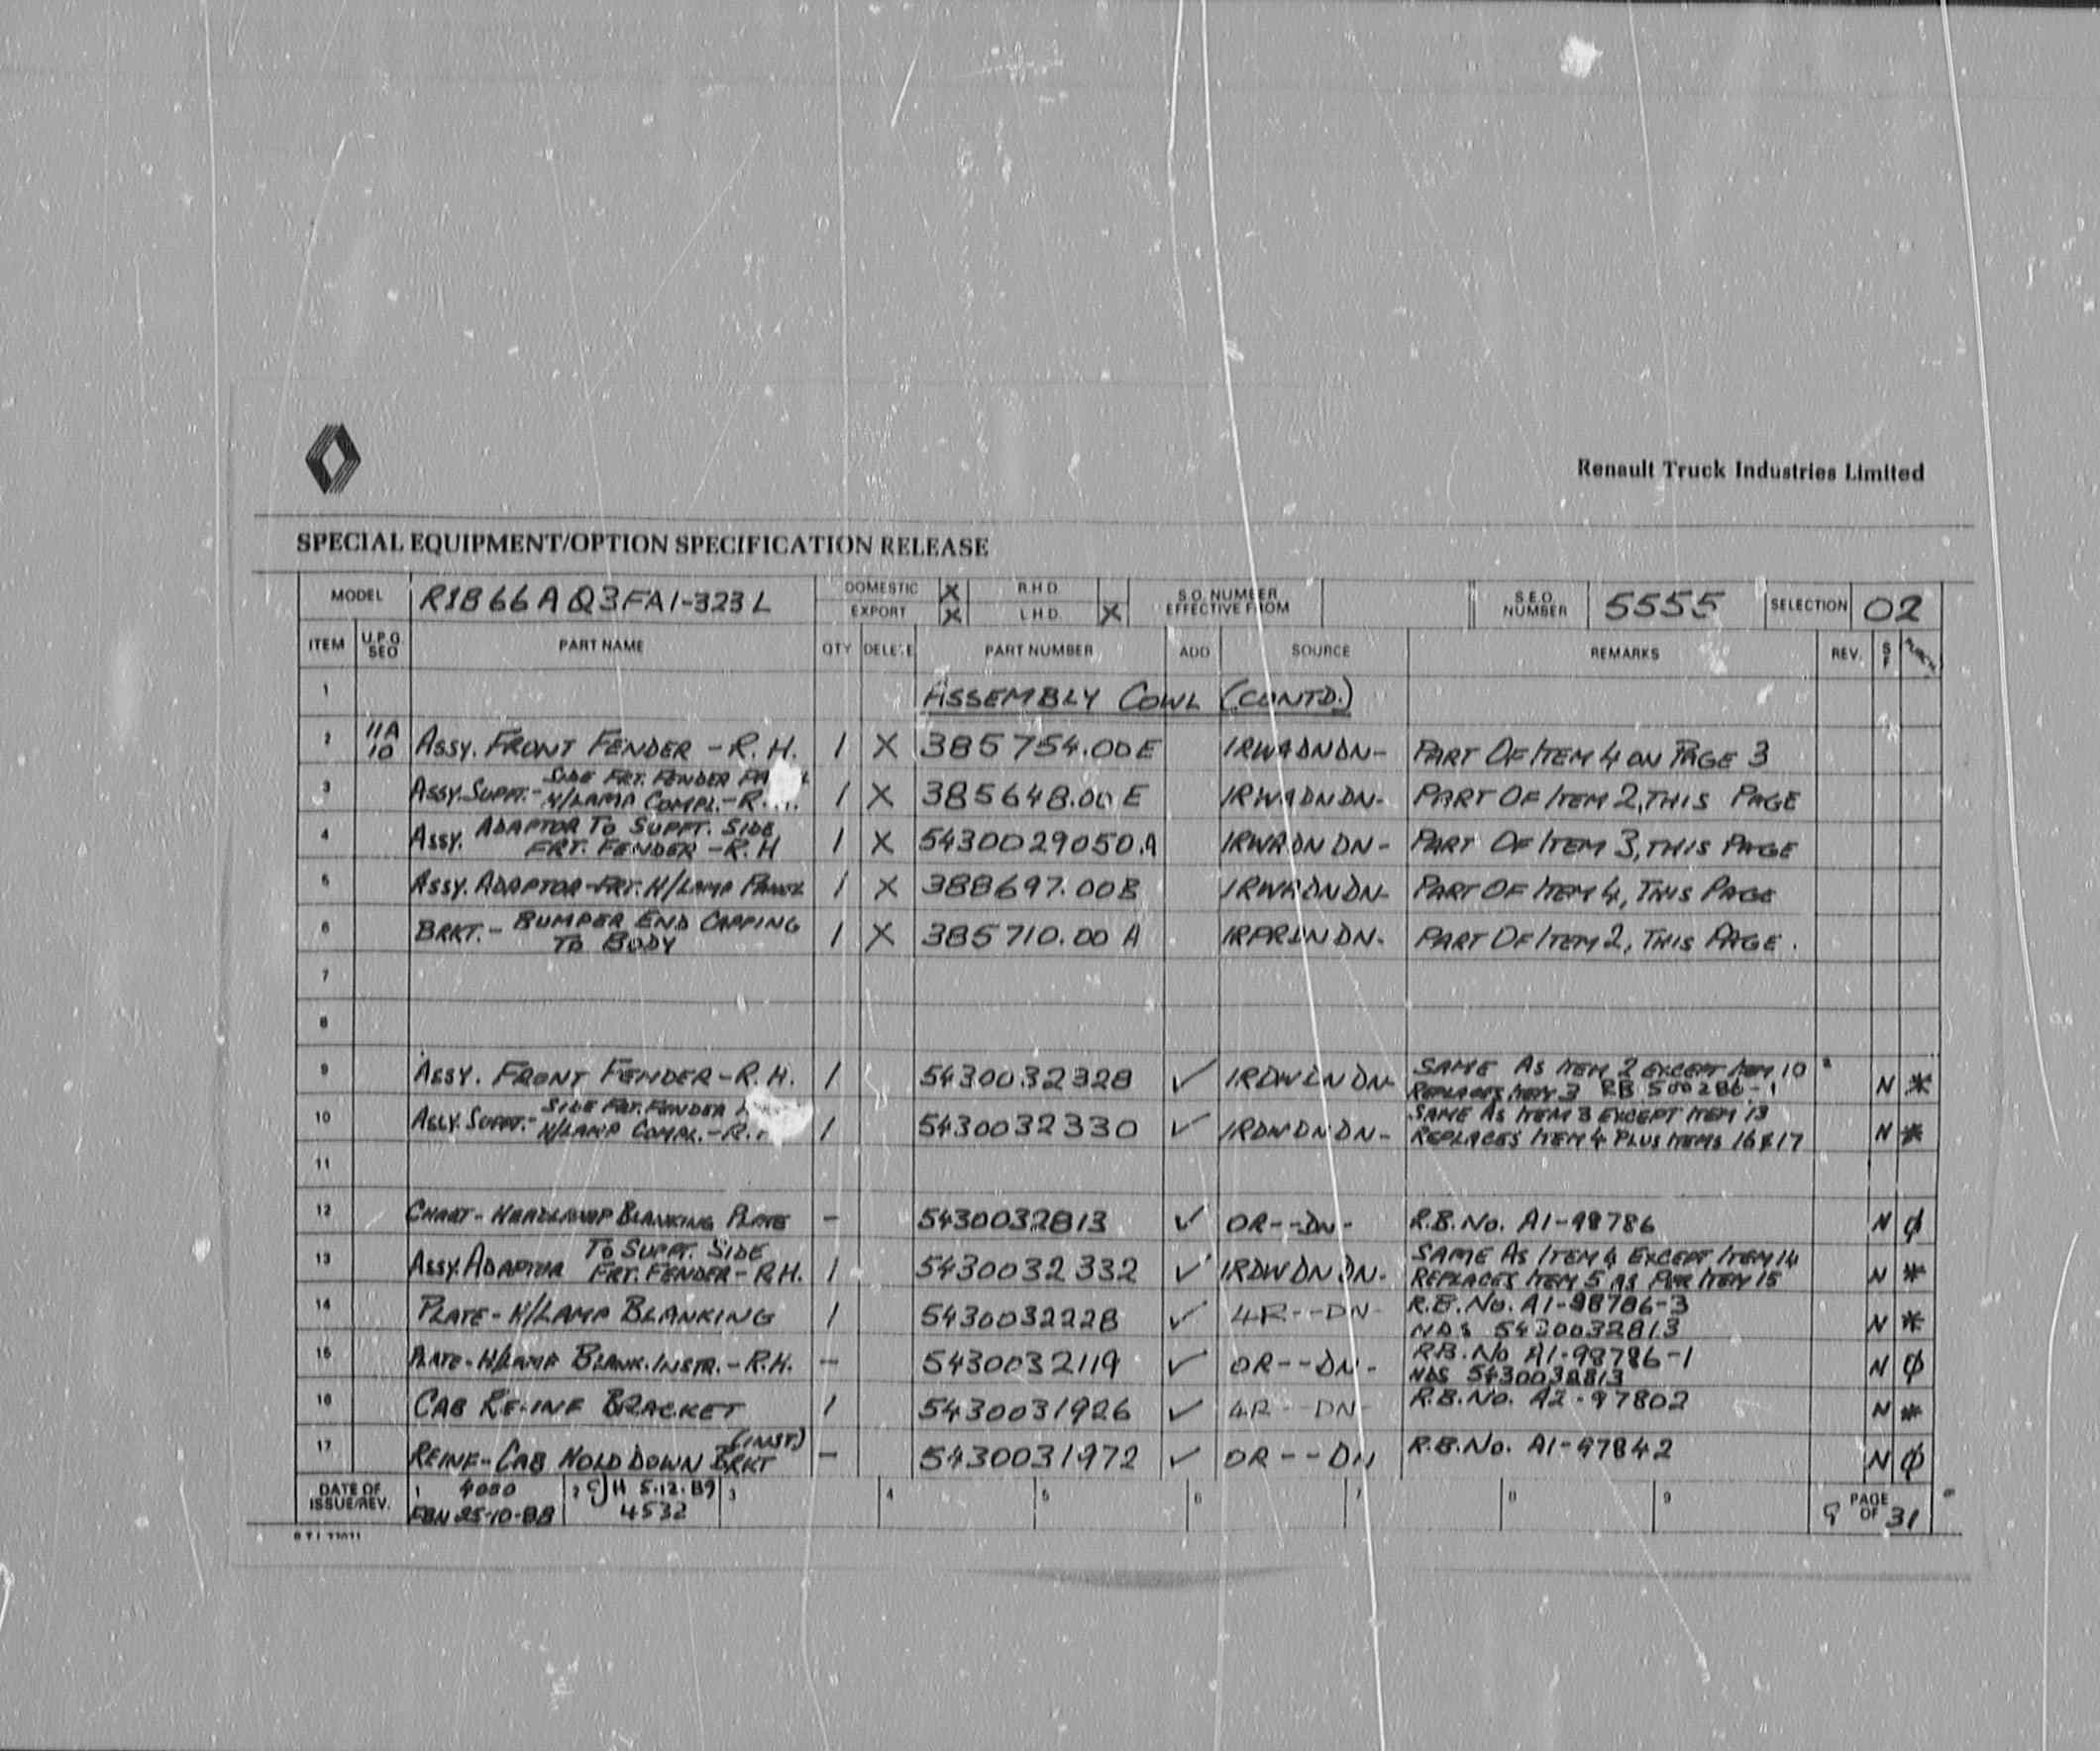 Renault Truck Industries Limited
SPECIAL EQUIPMENT/OPTION SPECIFICATION RELEASE
MODEL R1B66AQ3FA1-323L DOMESTIC X R.H.D. S.O. NUMBER EFFECTIVE FROM S.E.O. NUMBER 5555 SELECTION 02
EXPORT X L.H.D. X
ITEM U.P.G. SEO PART NAME QTY DELETE PART NUMBER ADD SOURCE REMARKS REV. S F
1 ASSEMBLY COWL (CONTD.)
2 11A 10 ASSY. FRONT FENDER - R.H. 1 X 385754.00E 1RWADNDN- PART OF ITEM 4 ON PAGE 3
3 ASSY. SUPPT.- SIDE FRT. FENDER H/LAMP COMPL.-R. 1 X 385648.00 E 1RWADNDN- PART OF ITEM 2, THIS PAGE
4 ASSY. ADAPTOR TO SUPPT. SIDE FRT. FENDER - R.H 1 X 5430029050.A 1RWADNDN- PART OF ITEM 3, THIS PAGE
5 ASSY. ADAPTOR-FRT. H/LAMP PANEL 1 X 388697.00B 1RWADNDN- PART OF ITEM 4, THIS PAGE
6 BRKT.- BUMPER END CAPPING TO BODY 1 X 385710.00 A 1RPRDNDN- PART OF ITEM 2, THIS PAGE.
7
8
9 ASSY. FRONT FENDER-R.H. 1 5430032328 ✓ 1RDWDNDN- SAME AS ITEM 2 EXCEPT ITEM 10
REPLACES ITEM 3 RB 500286-1 N *
10 ASSY. SUPPT.- SIDE FRT. FENDER H/LAMP COMPL.-R. 1 5430032330 ✓ 1RDWDNDN- SAME AS ITEM 3 EXCEPT ITEM 13
REPLACES ITEM 4 PLUS ITEMS 16 & 17 N *
11
12 CHART - HEADLAMP BLANKING PLATE - 5430032813 ✓ OR--DN- R.B. No. A1-98786 N ϕ
13 ASSY. ADAPTOR TO SUPPT. SIDE FRT. FENDER - R.H. 1 5430032332 ✓ 1RDWDNDN- SAME AS ITEM 4 EXCEPT ITEM 14
REPLACES ITEM 5 AS PER ITEM 15 N *
14 PLATE - H/LAMP BLANKING 1 5430032228 ✓ 4R--DN- R.B. No. A1-98786-3
NDS 5430032813 N *
15 PLATE-H/LAMP BLANK. INSTR.-R.H. - 5430032119 ✓ OR--DN- R.B. No A1-98786-1
NDS 5430032813 N ϕ
16 CAB RE-INF BRACKET 1 5430031926 ✓ 4R--DN- R.B. No. A2-97802 N *
17 REINF-CAB HOLD DOWN BRKT (INST) - 5430031972 ✓ OR---DN R.B. No. A1-97842 N ϕ
DATE OF ISSUE/REV. 1 4080 2 H 5.12.89 3 4 5 6 7 8 9 PAGE 9 OF 31
25-10-88 4532